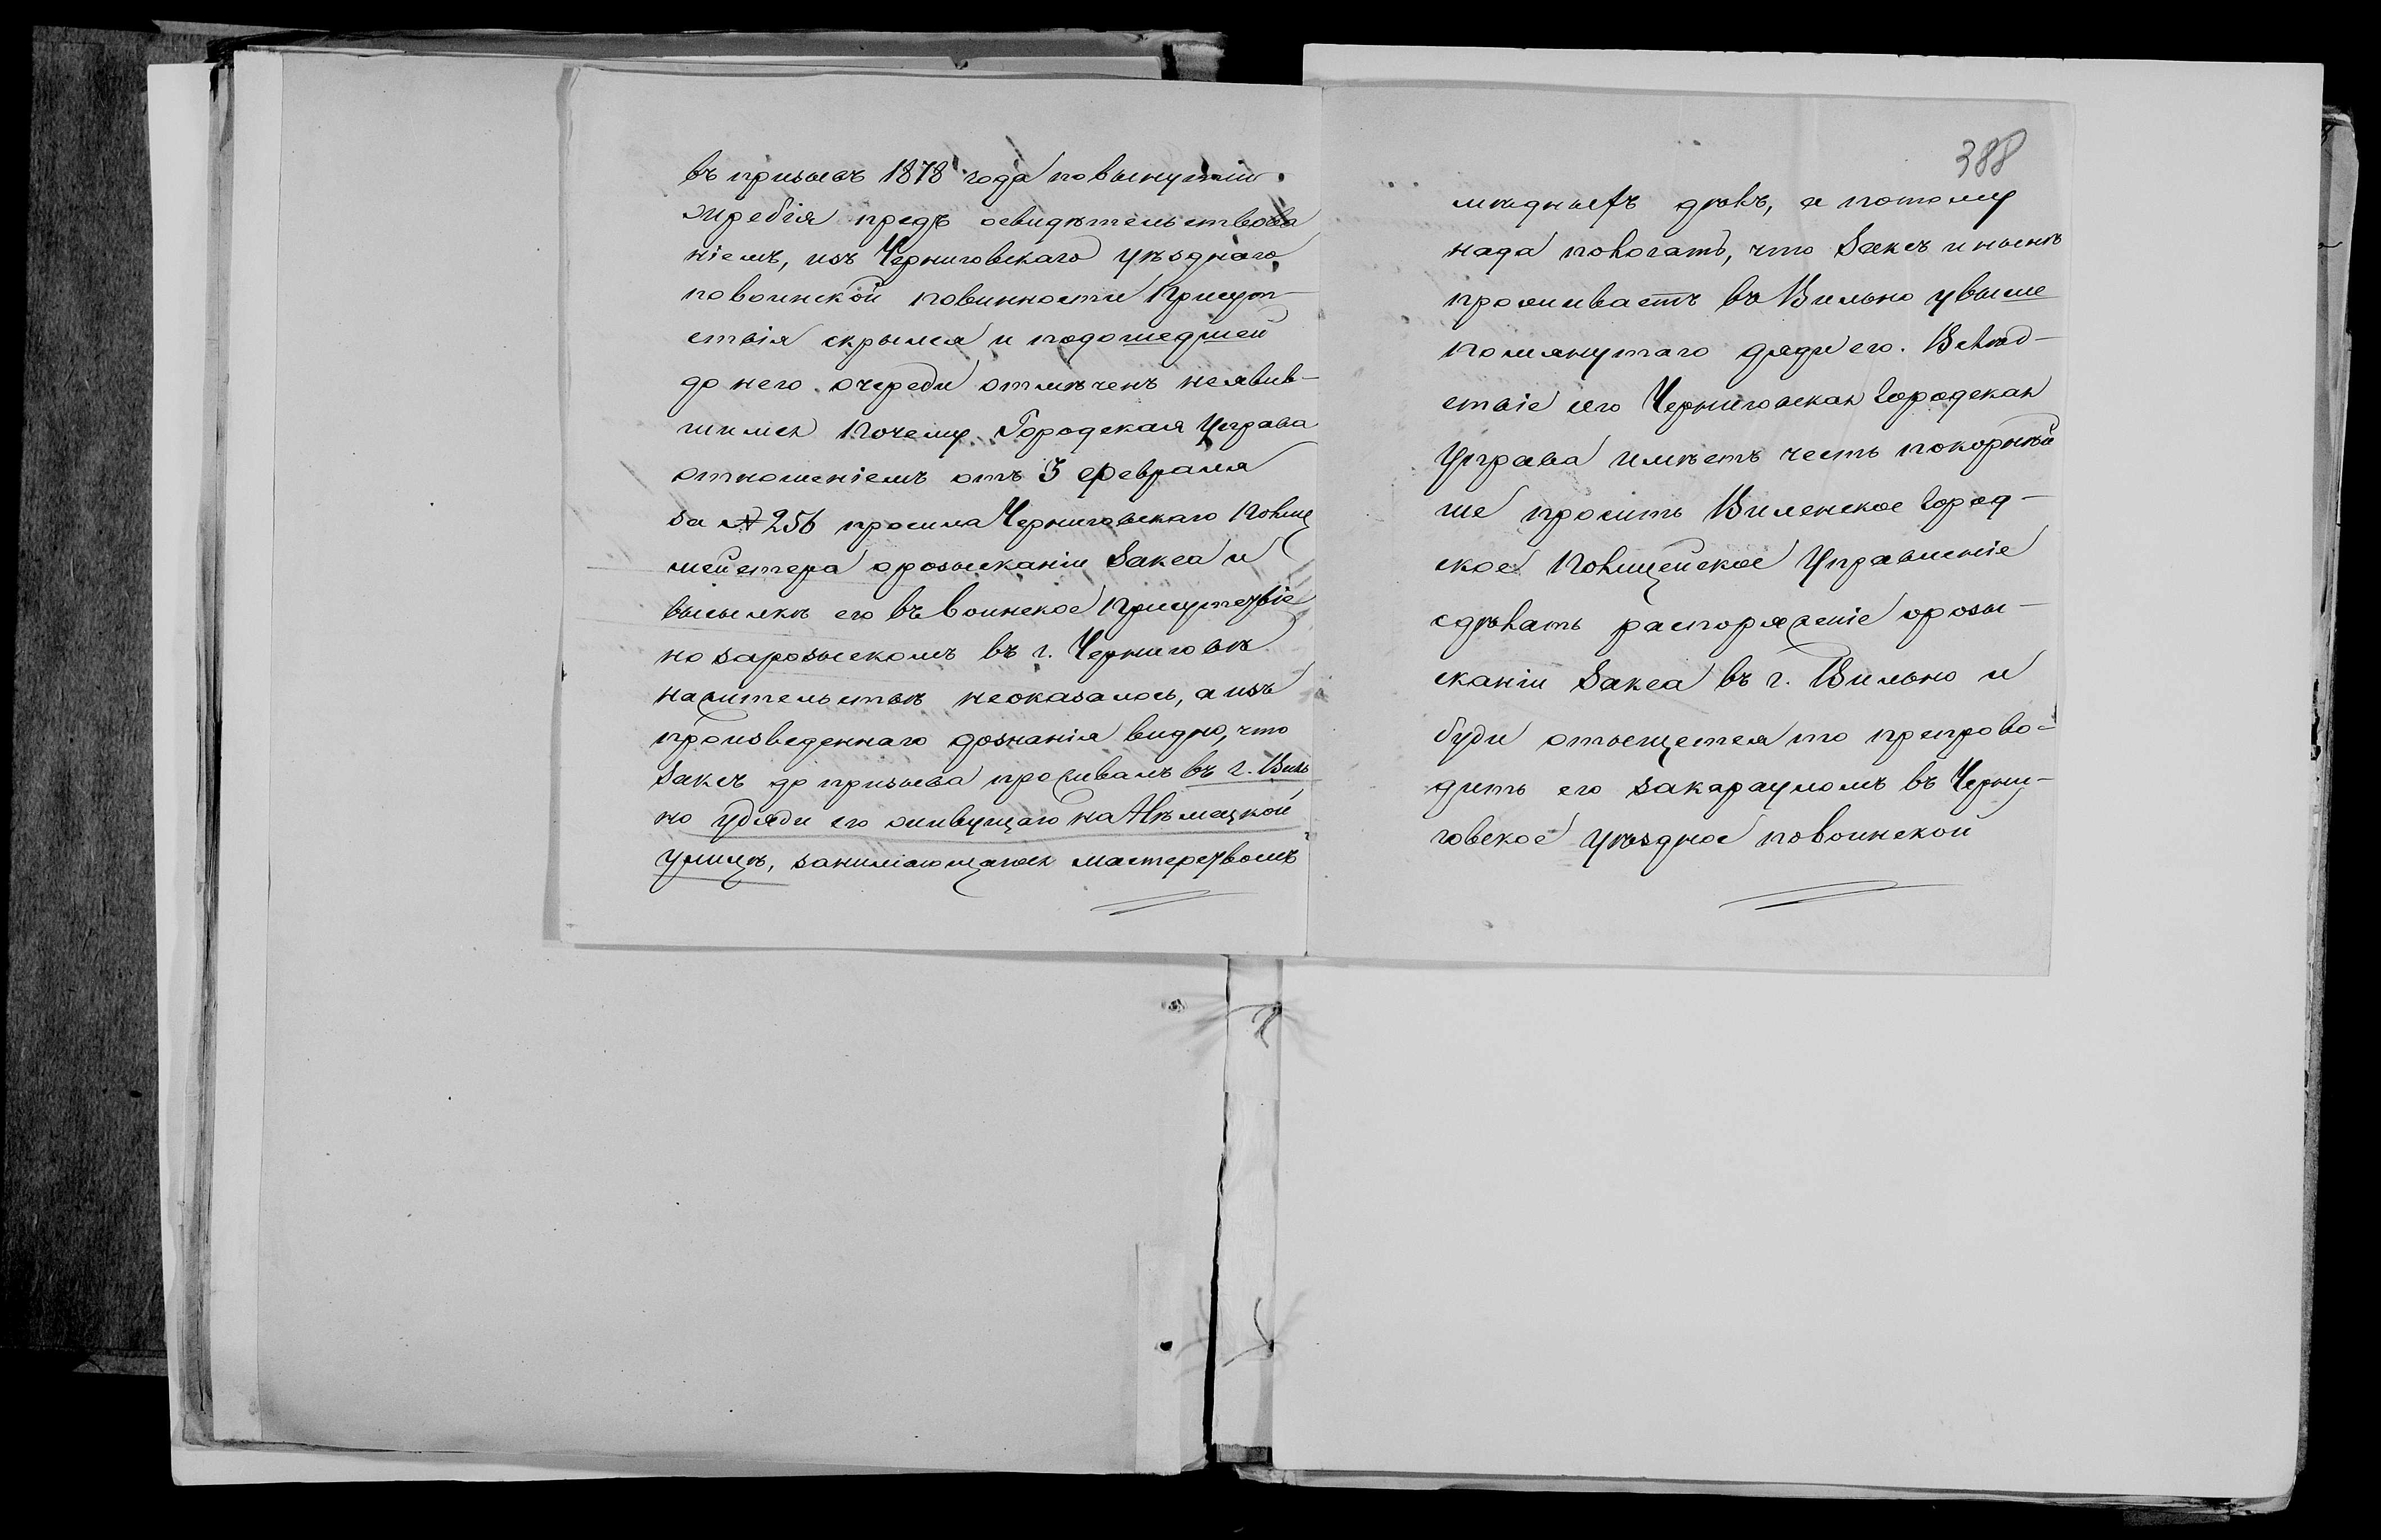 въ призывъ 1878 года повынутіи
жребія предъ освидѣтельствова
ніемъ, изъ Черниговскаго уѣзднаго
повоинской повинности Присут-
ствія скрылся и подошедшей
до него очереди отмѣченъ неявив-
шимся почему Городская Управа
отношеніемъ отъ 3 февраля
за № 256 просила Черниговскаго Полиц
мейстера орозысканіи Закса и
высылкѣ его въ воинское Присутствіе
но зарозыскомъ въ г. Черниговѣ
нажительствѣ неоказалось, а изъ
произведеннаго дознанія видно, что
Заксъ до призыва проживалъ въ г. Виль
но удяди его живущаго на Нѣмецкой
улицѣ, занимающагося мастерствомъ
388
мѣдныхъ дѣлъ, а потому
нада пологать, что Заксъ и нынѣ
проживаетъ въ Вильно увыше
помянутаго дяди его. Вслѣд-
ствіе сего Черниговская Городская
Управа имѣетъ честь покорнѣй
ше просить Виленское Город-
ское Полицейское Управленіе
сдѣлать распоряженіе орозы-
сканіи Закса въ г. Вильно и
буди отыщется то препрово-
дить его закарауломъ въ Черни-
говское уѣздное повоинской